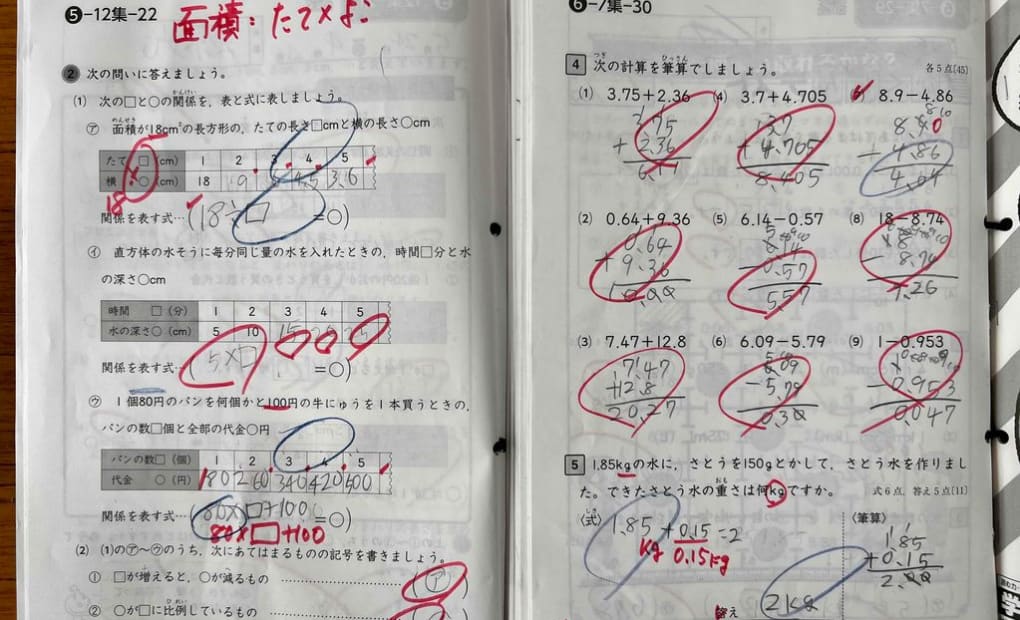 ❺-12集-22
面積：たて×よこ
❷ 次の問いに答えましょう。
(1) 次の□と○の関係を、表と式に表しましょう。
かんけい
㋐ 面積が18cm²の長方形の、たての長さ□cmと横の長さ○cm
めんせき
たて □(cm) 1 2 3 4 5
横 ○(cm) 18 9 4.5 3.6
×
18
関係を表す式…(18÷□ =○)
㋑ 直方体の水そうに毎分同じ量の水を入れたときの、時間□分と水
の深さ○cm
時間 □(分) 1 2 3 4 5
水の深さ○(cm) 5 10 15 20
関係を表す式…(5×□ =○)
㋒ 1個80円のパンを何個かと100円の牛にゅうを1本買うときの、
パンの数□個と全部の代金○円
パンの数□(個) 1 2 3 4 5
代金 ○(円) 180 260 340 420 500
関係を表す式…(80×□+100 =○)
80×□+100
(2) (1)の㋐〜㋒のうち、次にあてはまるものの記号を書きましょう。
① □が増えると、○が減るもの (㋐)
② ○が□に比例しているもの
ひれい
❻-7集-30
4 次の計算を筆算でしましょう。 各5点[45]
つぎ ひっさん
(1) 3.75+2.36 (4) 3.7+4.705 8.9-4.86
+2.36 +4.705 -4.86
8.405 4.04
(2) 0.64+9.36 (5) 6.14-0.57 (8) 18-8.74
0.64
+9.36 0.57 -8.74
5.57
(3) 7.47+12.8 (6) 6.09-5.79 (9) 1-0.953
7.47 6.09
+12.8 -5.79 -0.953
20.27 0.30 0.047
5 1.85kgの水に、さとうを150gとかして、さとう水を作りまし
た。できたさとう水の重さは何kgですか。 式6点、答え5点[11]
おも
(式) (筆算)
しき
1.85+0.15=2
kg 0.15kg
1.85
+0.15
2.00
答え 2kg